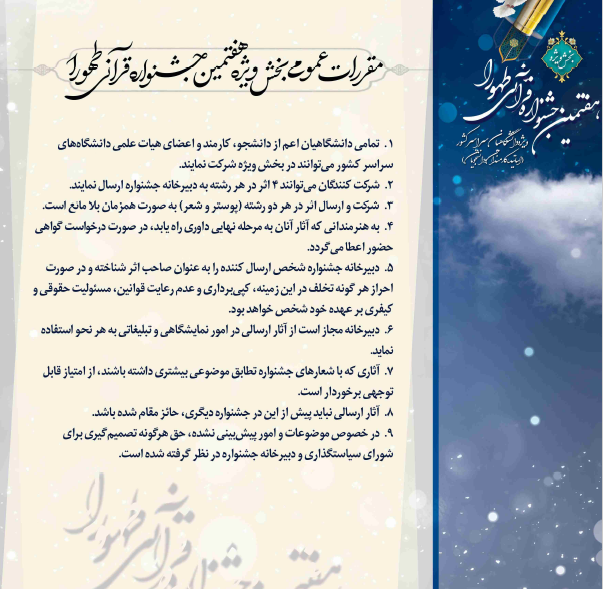 بخش ویژه
هفتمین جشنواره قرآنی طهورا
ویژه دانشگاهیان سراسر کشور
(اساتید، کارمندان، دانشجویان)
مقررات عمومی بخش ویژه هفتمین جشنواره قرآنی طهورا
۱. تمامی دانشگاهیان اعم از دانشجو، کارمند و اعضای هیات علمی دانشگاه‌های
سراسر کشور می‌توانند در بخش ویژه شرکت نمایند.
۲. شرکت کنندگان می‌توانند ۴ اثر در هر رشته به دبیرخانه جشنواره ارسال نمایند.
۳. شرکت و ارسال اثر در هر دو رشته (پوستر و شعر) به صورت همزمان بلا مانع است.
۴. به هنرمندانی که آثار آنان به مرحله نهایی داوری راه یابد، در صورت درخواست گواهی
حضور اعطا می‌گردد.
۵. دبیرخانه جشنواره شخص ارسال کننده را به عنوان صاحب اثر شناخته و در صورت
احراز هر گونه تخلف در این زمینه، کپی‌برداری و عدم رعایت قوانین، مسئولیت حقوقی و
کیفری بر عهده خود شخص خواهد بود.
۶. دبیرخانه مجاز است از آثار ارسالی در امور نمایشگاهی و تبلیغاتی به هر نحو استفاده
نماید.
۷. آثاری که با شعارهای جشنواره تطابق موضوعی بیشتری داشته باشند، از امتیاز قابل
توجهی برخوردار است.
۸. آثار ارسالی نباید پیش از این در جشنواره دیگری، حائز مقام شده باشد.
۹. در خصوص موضوعات و امور پیش‌بینی نشده، حق هرگونه تصمیم‌گیری برای
شورای سیاستگذاری و دبیرخانه جشنواره در نظر گرفته شده است.
هفتمین جشنواره قرآنی طهورا